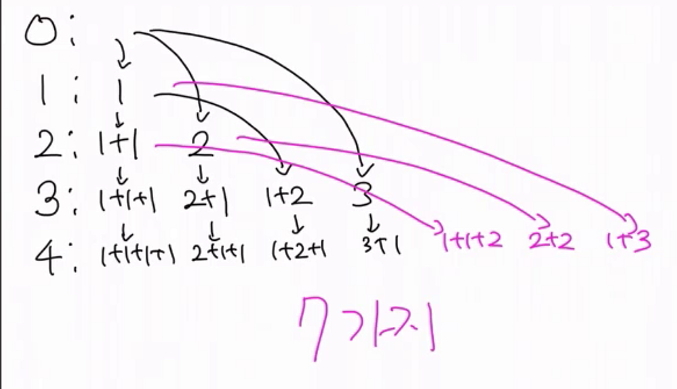 0:
1: 1
2: 1+1 2
3: 1+1+1 2+1 1+2 3
4: 1+1+1+1 2+1+1 1+2+1 3+1 1+1+2 2+2 1+3
7가지